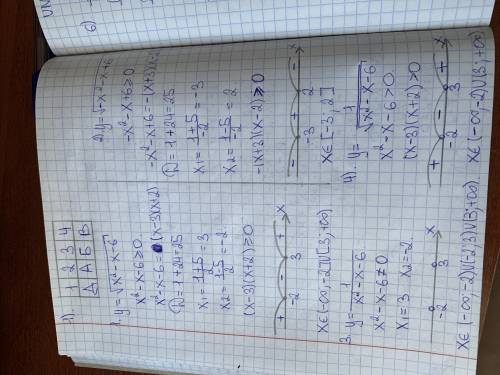 1).
1 2 3 4
Д А Б В
1. y = √x²-x-6
x²-x-6≥0
x²-x-6 (x-3)(x+2)
D=1+24=25
x₁ = 1+5/2 = 3
x₂ = 1-5/2 = -2
(x-3)(x+2)≥0
+ - +
-2 3 x
x∈(-∞;-2]U[3;+∞)
3. y = 1/x²-x-6
x²-x-6≠0
x₁=3 x₂=-2
-2 3 x
x∈(-∞;-2)U(-2;3)U(3;+∞)
2. y=√-x²-x+6
-x²-x+6≥0
-x²-x+6=-(x+3)(x-2)
D=1+24=25
x₁ = 1+5/-2 = -3
x₂ = 1-5/-2 = 2
-(x+3)(x-2)≥0
- + -
-3 2 x
x∈[-3;2]
4). y = 1/√x²-x-6
x²-x-6>0
(x-3)(x+2)>0
+ - +
-2 3 x
x∈(-∞;-2)U(3;+∞)
6)